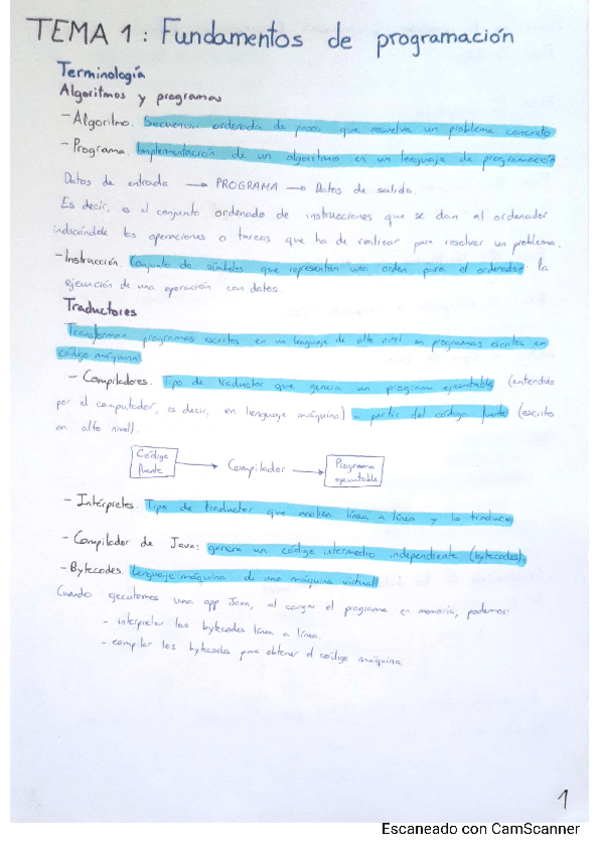 TEMA 1: Fundamentos de programación
Terminología
Algoritmos y programas
- Algoritmo. Secuencia ordenada de pasos que resuelve un problema concreto
- Programa. Implementación de un algoritmo en un lenguaje de programación
Datos de entrada → PROGRAMA → Datos de salida.
Es decir, es el conjunto ordenado de instrucciones que se dan al ordenador
indicándole las operaciones o tareas que ha de realizar para resolver un problema.
- Instrucción. Conjunto de símbolos que representan una orden para el ordenador: la
ejecución de una operación con datos.
Traductores
Transforman programas escritos en un lenguaje de alto nivel en programas escritos en
código máquina.
- Compiladores. Tipo de traductor que genera un programa ejecutable (entendido
por el computador, es decir, en lenguaje máquina) a partir del código fuente (escrito
en alto nivel).
Código fuente → Compilador → Programa ejecutable
- Intérpretes. Tipo de traductor que analiza línea a línea y lo traduce
- Compilador de Java: genera un código intermedio independiente (bytecodes).
- Bytecodes. Lenguaje máquina de una máquina virtual
Cuando ejecutamos una app Java, al cargar el programa en memoria, podemos:
- interpretar los bytecodes línea a línea.
- compilar los bytecodes para obtener el código máquina.
1
Escaneado con CamScanner